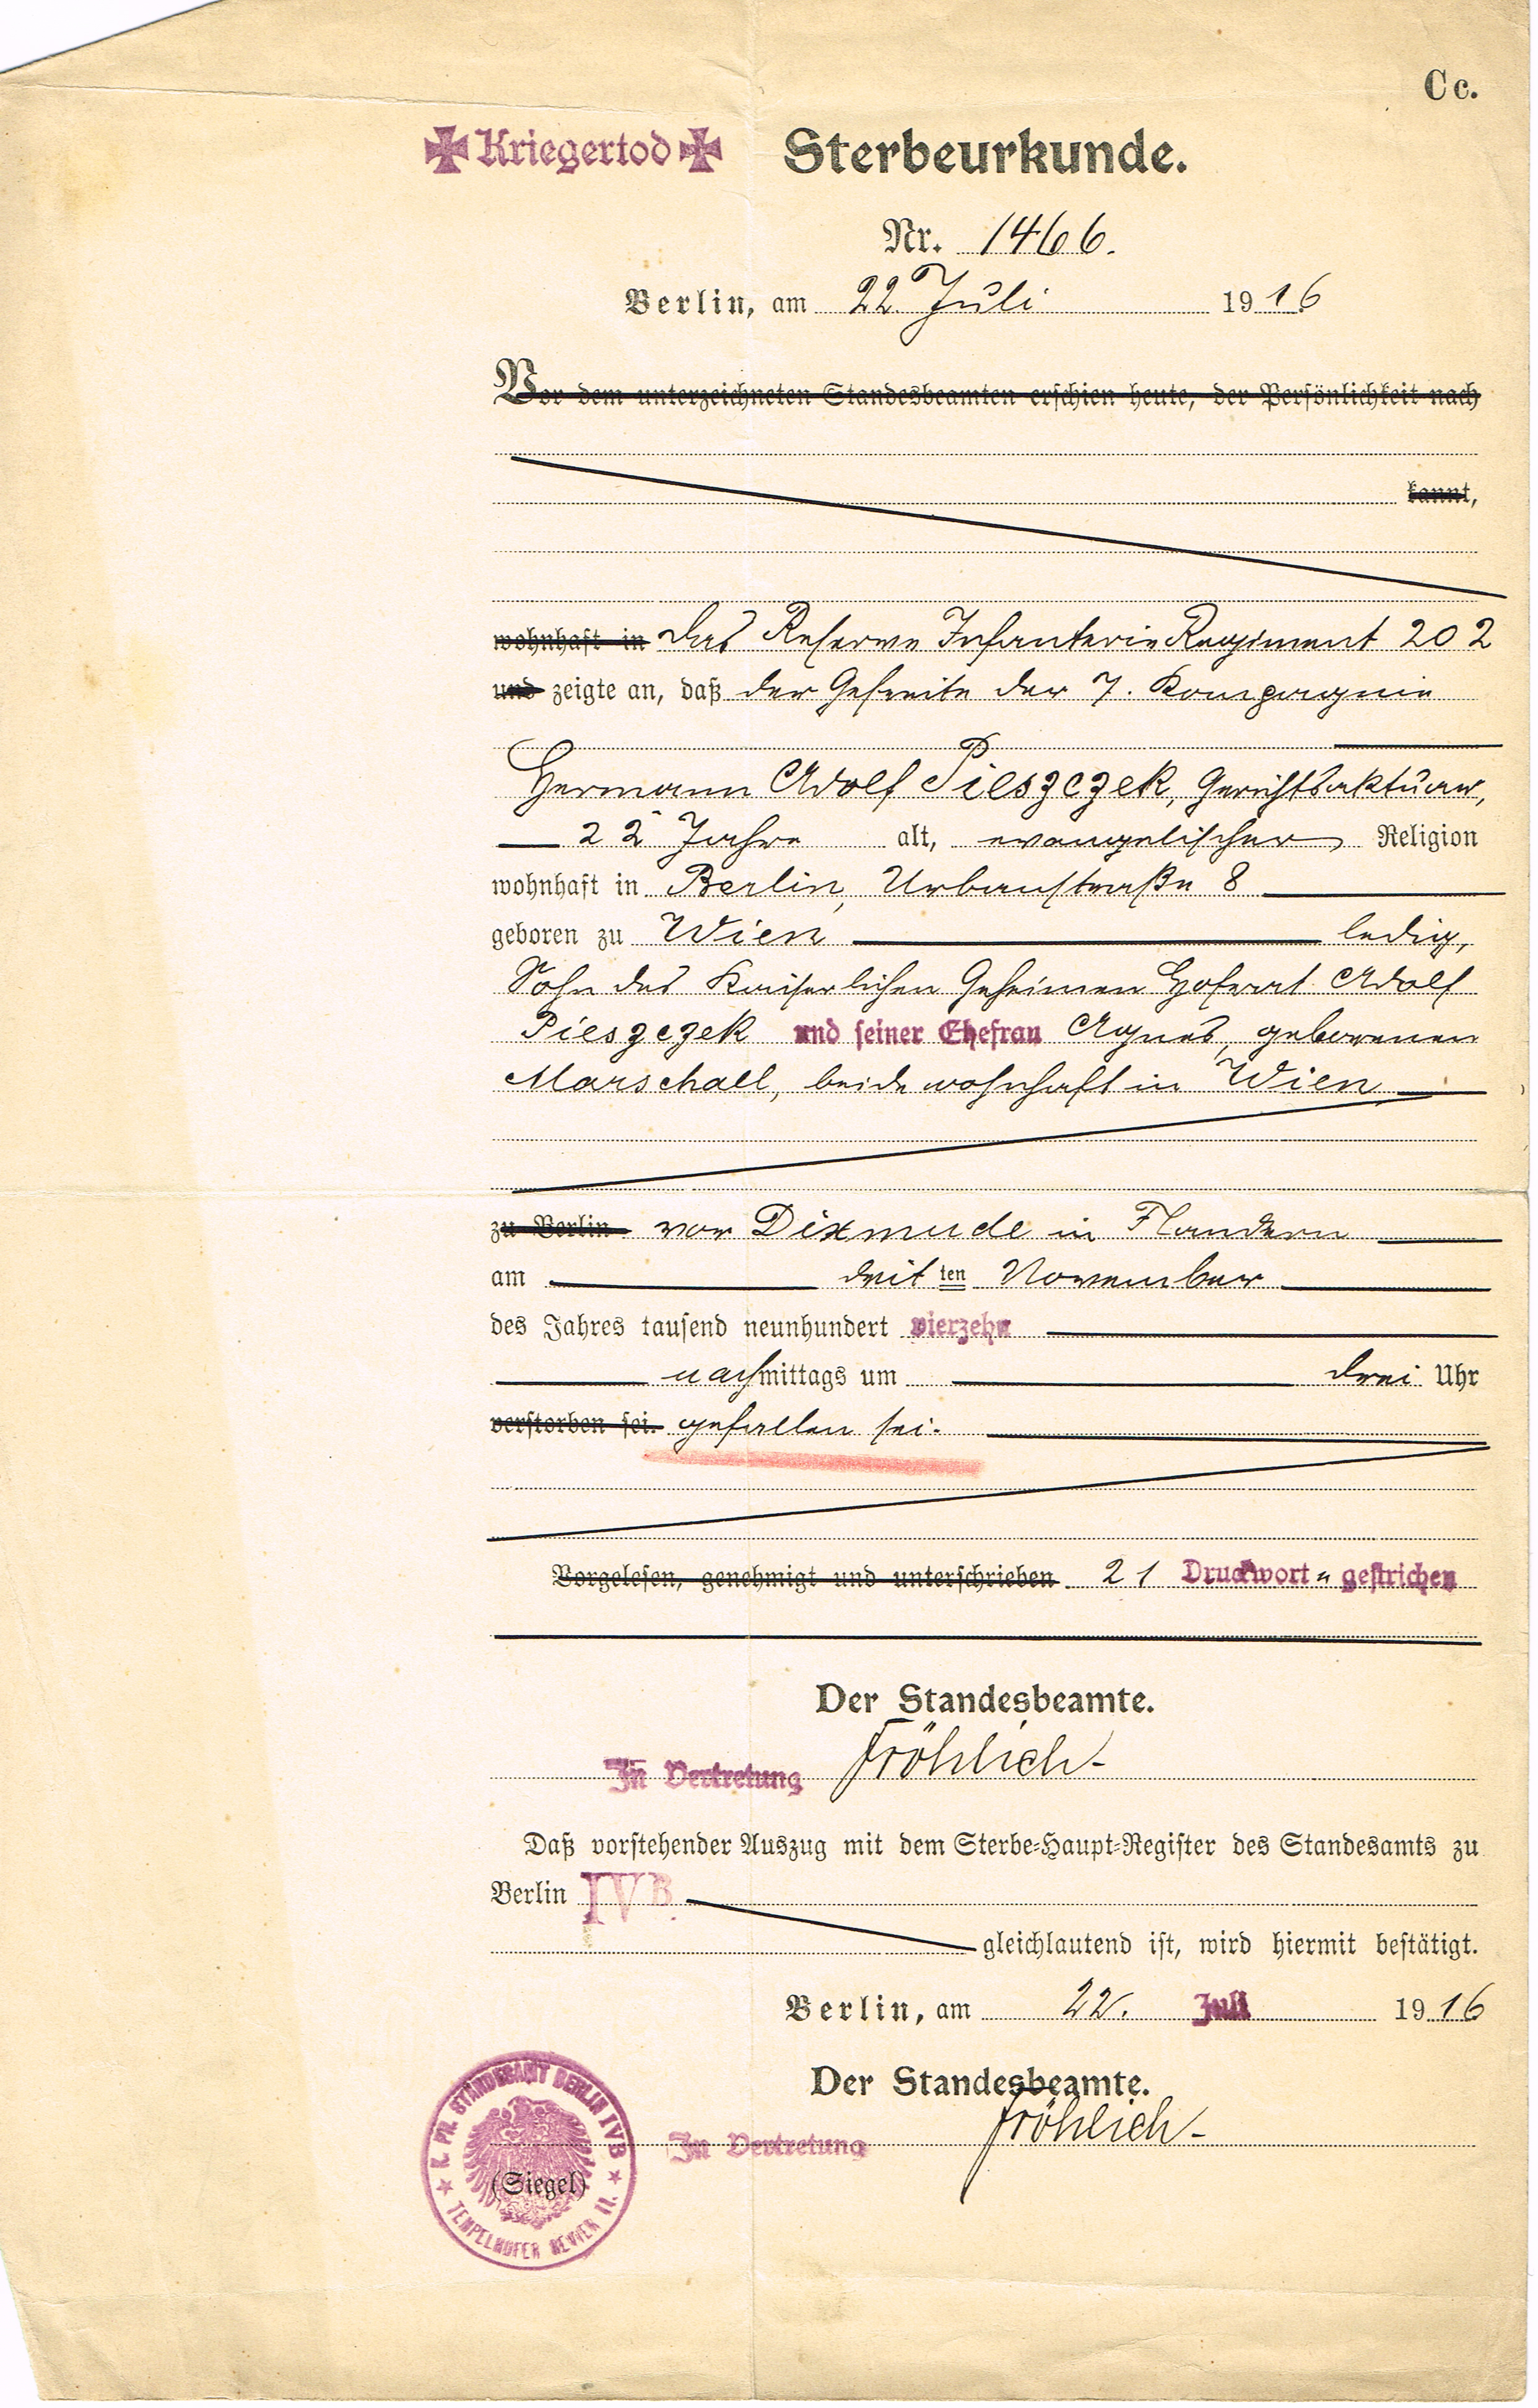 Cc.
✠ Kriegertod ✠ Sterbeurkunde.
Nr. 1466.
Berlin, am 22 Juli 1916
Vor dem unterzeichneten Standesbeamten erschien heute, der Persönlichkeit nach
kannt,
wohnhaft in das Reserve Infanterie Regiment 202
und zeigte an, daß der Gefreite der 7. Kompagnie
Hermann Adolf Pieszczek, Gerichtsaktuar,
22 Jahre alt, evangelischer Religion
wohnhaft in Berlin, Urbanstraße 8
geboren zu Wien ledig,
Sohn des Kaiserlichen Geheimen Hofrat Adolf
Pieszczek und seiner Ehefrau Agnes, geborenen
Marschall, beide wohnhaft in Wien
zu Berlin vor Dixmude in Flandern
am ten November
des Jahres tausend neunhundert vierzehn
nachmittags um drei Uhr
verstorben sei. gefallen sei.
Vorgelesen, genehmigt und unterschrieben 21 Druckwort n gestrichen
Der Standesbeamte.
In Vertretung Fröhlich
Daß vorstehender Auszug mit dem Sterbe-Haupt-Register des Standesamts zu
Berlin IVB.
gleichlautend ist, wird hiermit bestätigt.
Berlin, am 22. Juli 1916
Der Standesbeamte.
In Vertretung Fröhlich
K. PR. STANDESAMT BERLIN IVB
(Siegel)
TEMPELHOFER REVIER II.